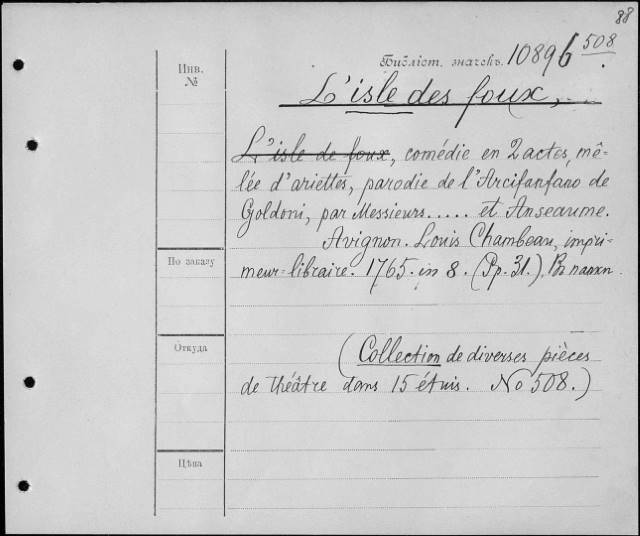 88
Инв.
№
Библіот. значекъ. 10896 508
L'isle des foux,
L'isle de foux, comédie en 2 actes, mê-
lée d'ariettes, parodie de l'Arcifanfano de
Goldoni, par Messieurs..... et Anseaume.
Avignon. Louis Chambeau, impri-
По заказу
meur-libraire. 1765. in 8. (Pp. 31.). Въ папкѣ
Откуда
(Collection de diverses pièces
de théâtre dans 15 étuis. No 508.)
Цѣна